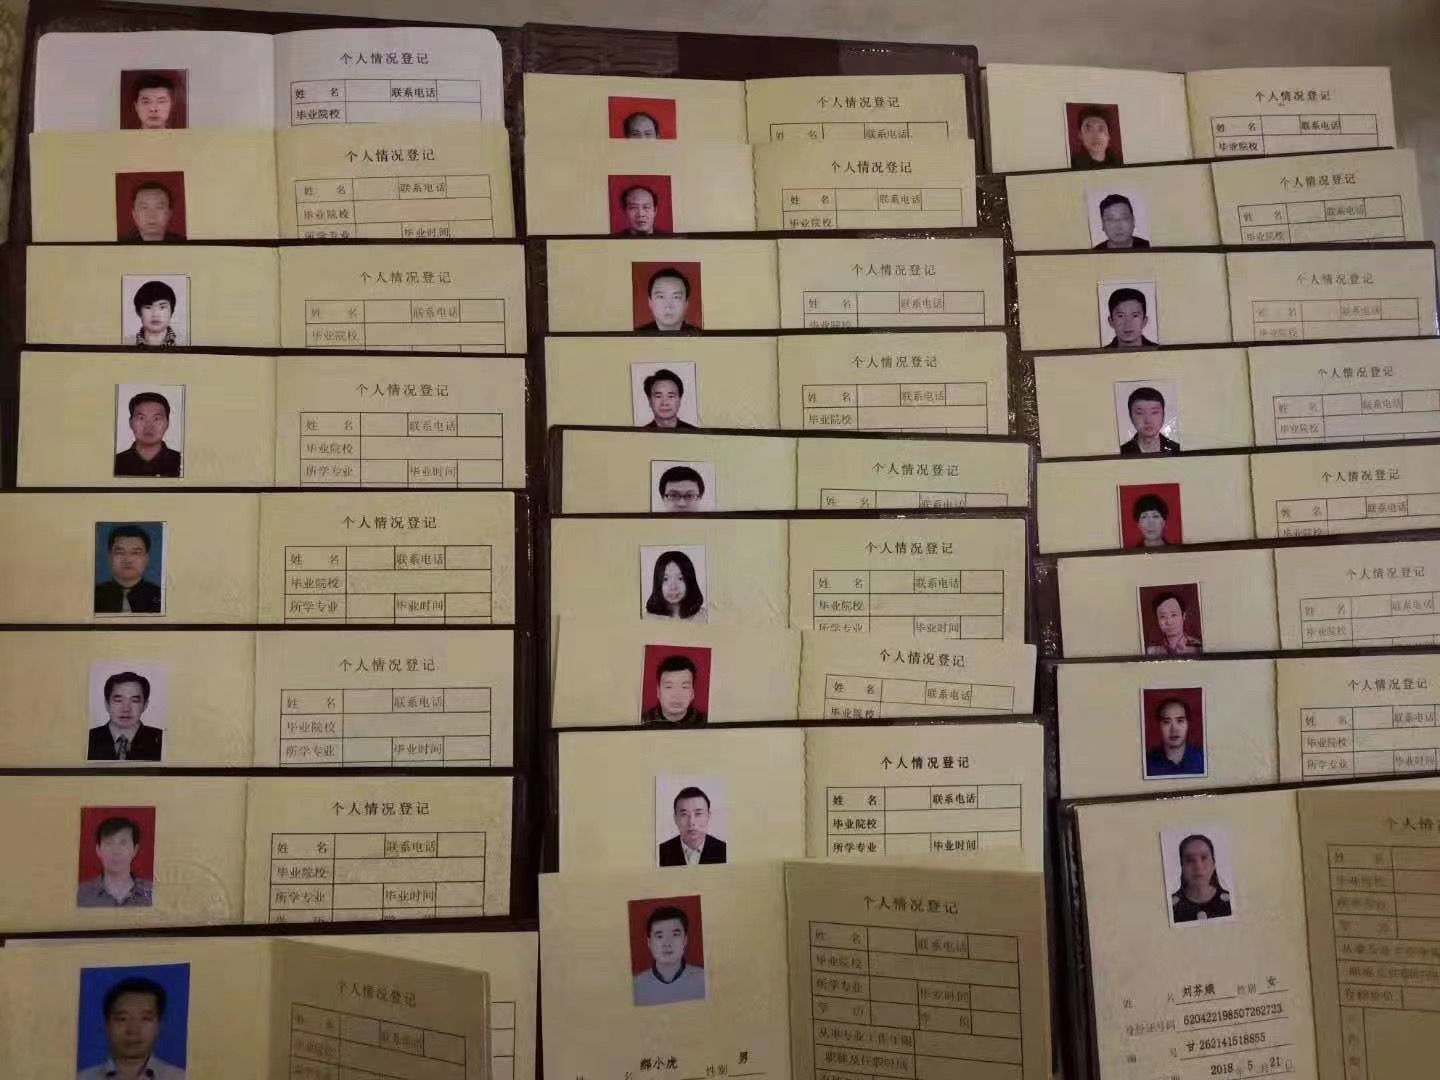 个人情况登记
姓 名 联系电话
毕业院校
个人情况登记
姓 名 联系电话
毕业院校
所学专业 毕业时间
个人情况登记
姓 名 联系电话
毕业院校
个人情况登记
姓 名 联系电话
毕业院校
所学专业 毕业时间
个人情况登记
姓 名 联系电话
毕业院校
所学专业 毕业时间
个人情况登记
姓 名 联系电话
毕业院校
所学专业 毕业时间
个人情况登记
姓 名 联系电话
毕业院校
所学专业 毕业时间
个人情况登记
联系电话
个人情况登记
姓 名 联系电话
个人情况登记
姓 名 联系电话
毕业院校
个人情况登记
姓 名 联系电话
毕业院校
个人情况登记
姓 名 联系电话
毕业院校
个人情况登记
姓 名 联系电话
个人情况登记
姓 名 联系电话
毕业院校
所学专业 毕业时间
个人情况登记
姓 名 联系电话
毕业院校
个人情况登记
姓 名 联系电话
毕业院校
所学专业 毕业时间
个人情况登记
姓 名 联系电话
毕业院校
所学专业 毕业时间
学 历 学 位
从事专业工作年限
职称及任职时间
小虎 性别 男
个人情况登记
姓 名 联系电话
毕业院校
个人情况登记
姓 名 联系电话
毕业院校
个人情况登记
姓 名 联系电话
毕业院校
个人情况登记
姓 名 联系电话
毕业院校
个人情况登记
姓 名 联系电话
毕业院校
个人情况登记
姓 名 联系电话
毕业院校
个人情况登记
姓 名 联系电话
毕业院校
所学专业 毕业时间
个人情
姓 名
毕业院校
所学专业
学 历
姓 名 刘芬娥 性别 女
身份证号码 620422198507262723
编 号 甘262141518855
2018年5月21日